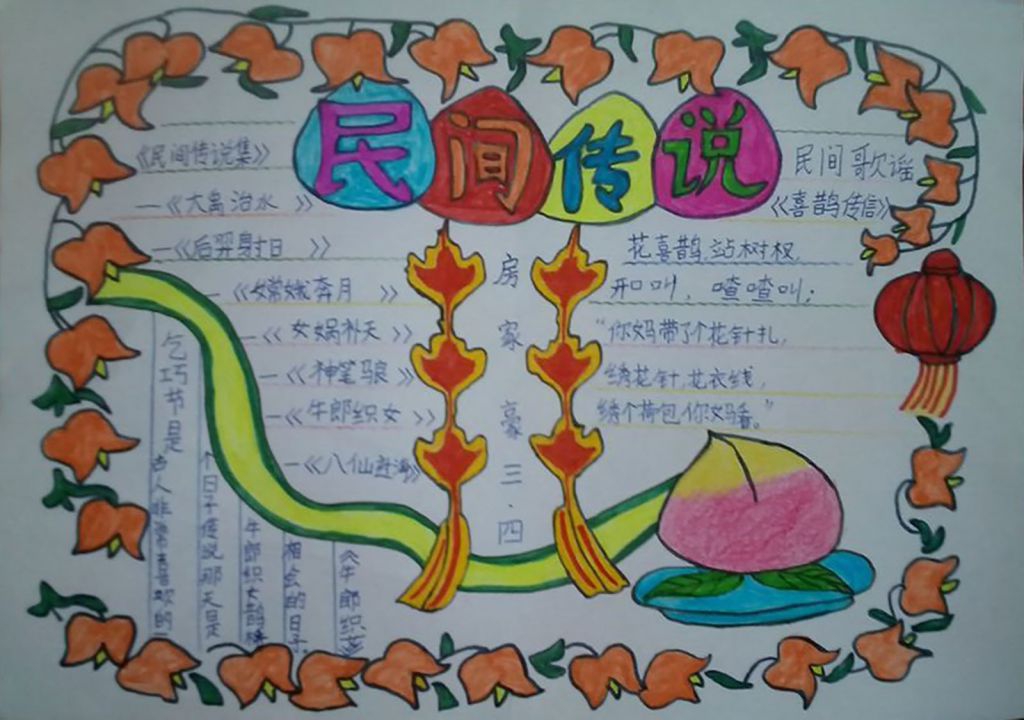 民间传说
《民间传说集》
—《大禹治水》
—《后羿射日》
—《嫦娥奔月》
—《女娲补天》
—《神笔马良》
—《牛郎织女》
—《八仙过海》
乞巧节是
古人非常喜欢的一
个日子传说那天是
牛郎织女鹊桥
相会的日子。
《牛郎织女
房家豪三.四
民间歌谣
《喜鹊传信》
花喜鹊,站树杈,
开口叫,喳喳叫:
“你妈带了个花针扎,
绣花针,花衣线,
绣个荷包你妈看。”